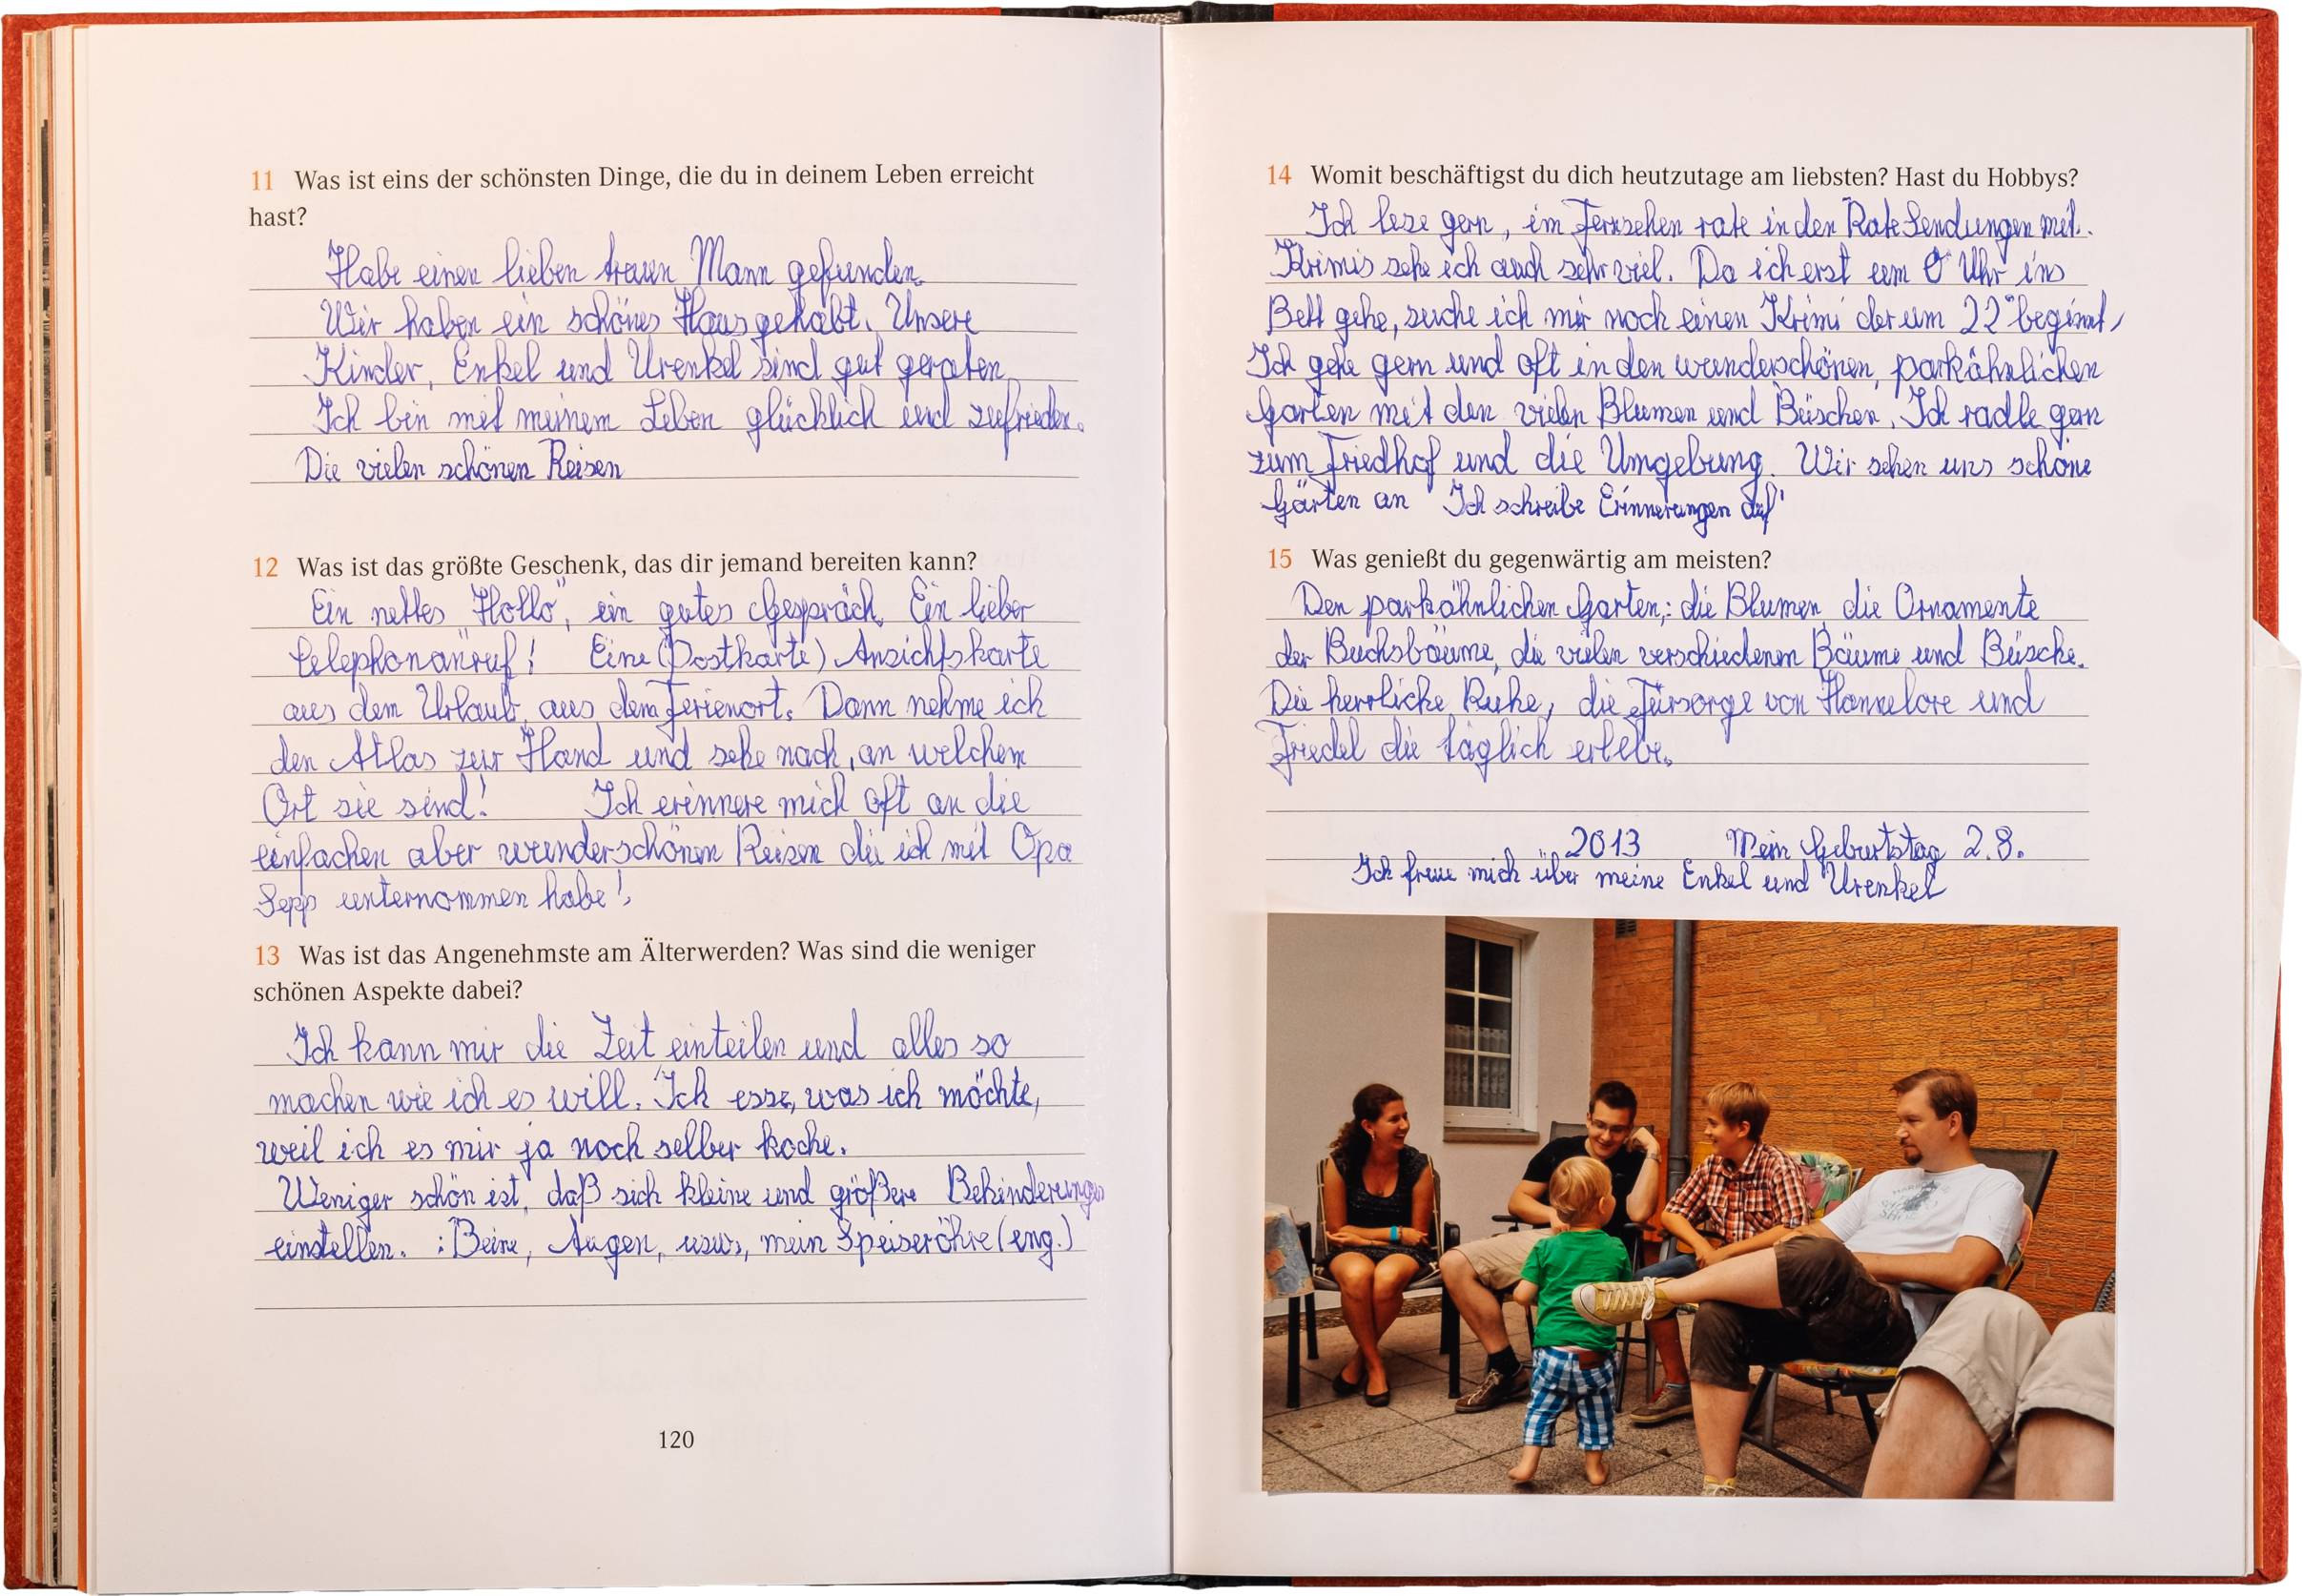 11 Was ist eins der schönsten Dinge, die du in deinem Leben erreicht
hast?
Habe einen lieben treuen Mann gefunden.
Wir haben ein schönes Haus gehabt. Unsere
Kinder, Enkel und Urenkel sind gut geraten.
Ich bin mit meinem Leben glücklich und zufrieden.
Die vielen schönen Reisen
12 Was ist das größte Geschenk, das dir jemand bereiten kann?
Ein nettes "Hallo", ein gutes Gespräch. Ein lieber
Telephonanruf! Eine (Postkarte) Ansichtskarte
aus dem Urlaub, aus dem Ferienort. Dann nehme ich
den Atlas zur Hand und sehe nach, an welchem
Ort sie sind! Ich erinnere mich oft an die
einfachen aber wunderschönen Reisen die ich mit Opa
Sepp unternommen habe!
13 Was ist das Angenehmste am Älterwerden? Was sind die weniger
schönen Aspekte dabei?
Ich kann mir die Zeit einteilen und alles so
machen wie ich es will. Ich esse, was ich möchte,
weil ich es mir ja noch selber koche.
Weniger schön ist, daß sich kleine und größere Behinderungen
einstellen. : Beine, Augen, usw., mein Speiseröhre (eng.)
120
14 Womit beschäftigst du dich heutzutage am liebsten? Hast du Hobbys?
Ich lese gern, im Fernsehen rate in den Rate Sendungen mit.
Krimis sehe ich auch sehr viel. Da ich erst um 0° Uhr ins
Bett gehe, suche ich mir noch einen Krimi der um 22°° beginnt,
Ich gehe gern und oft in den wunderschönen, parkähnlichen
Garten mit den vielen Blumen und Büschen. Ich radle gern
zum Friedhof und die Umgebung. Wir sehen uns schöne
Gärten an Ich schreibe Erinnerungen auf
15 Was genießt du gegenwärtig am meisten?
Den parkähnlichen Garten,: die Blumen, die Ornamente
der Buchsbäume, die vielen verschiedenen Bäume und Büsche.
Die herrliche Ruhe, die Fürsorge von Hannelore und
Friedel die täglich erlebe.
2013 Mein Geburtstag 2.8.
Ich freue mich über meine Enkel und Urenkel